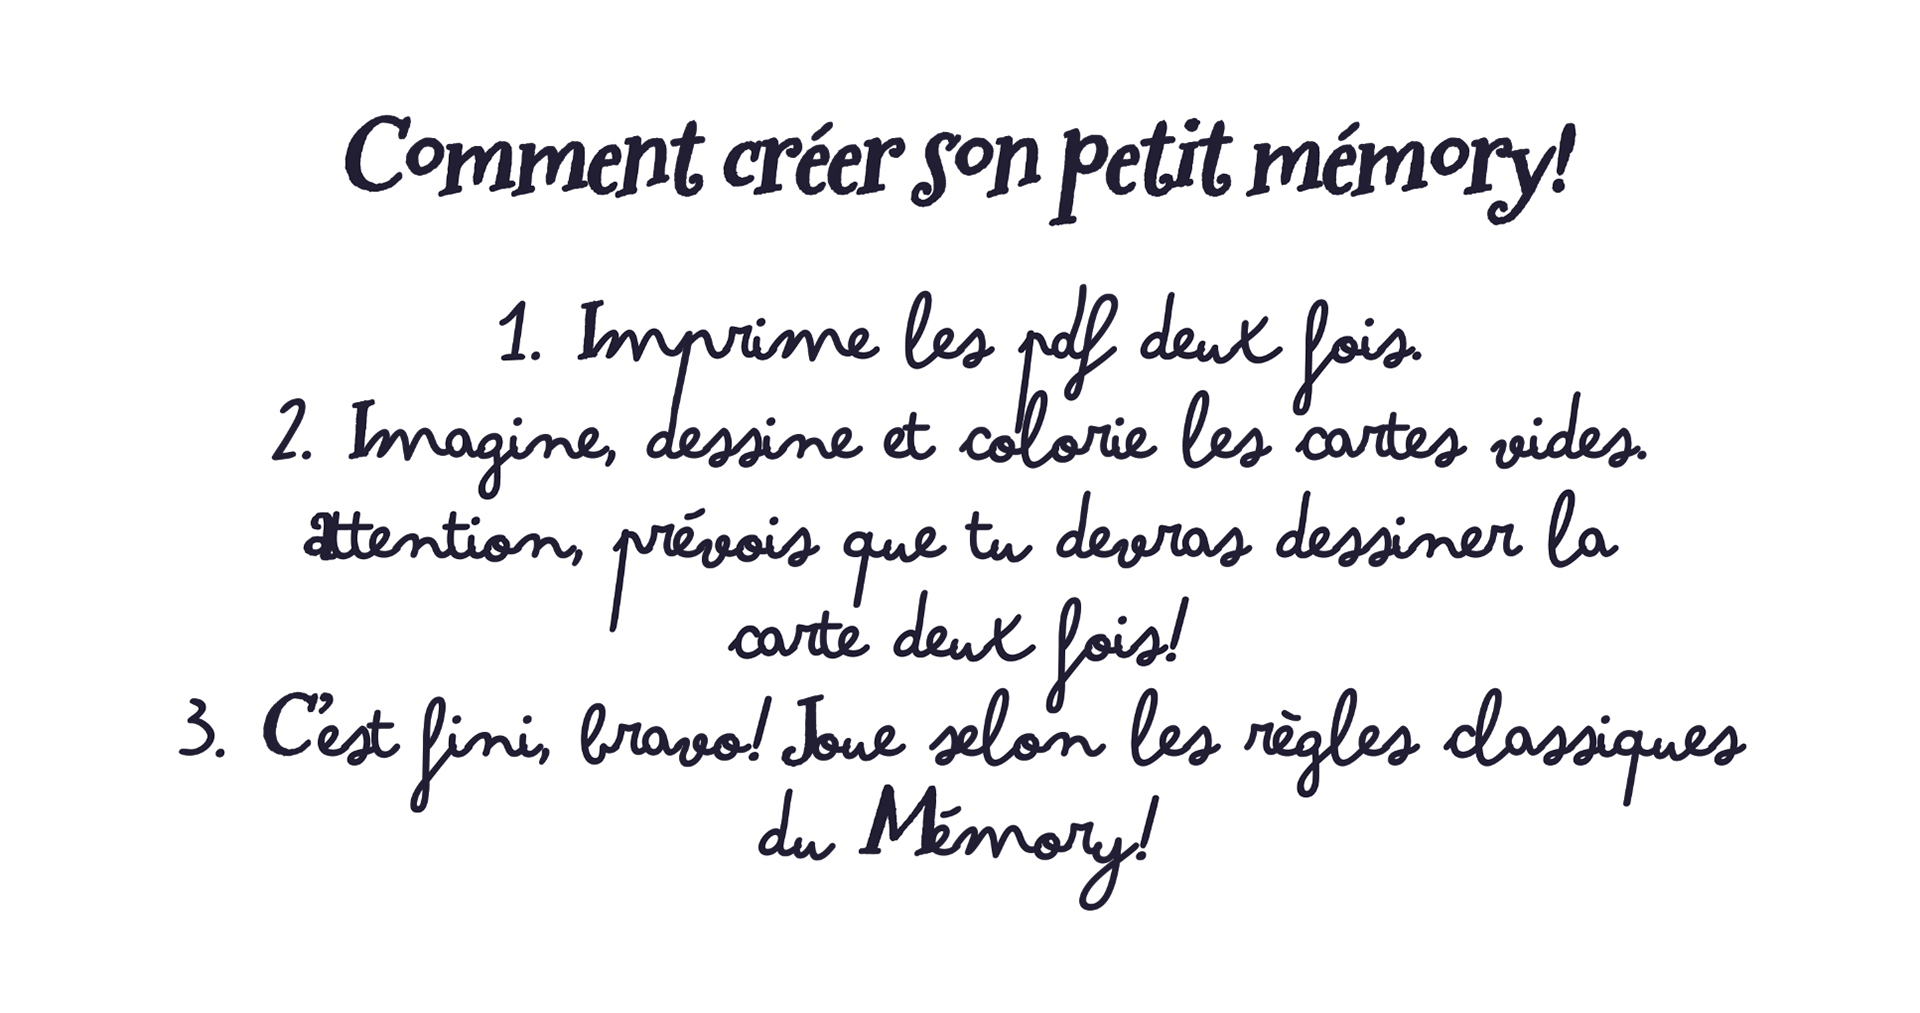 Comment créer son petit mémory!
1. Imprime les pdf deux fois.
2. Imagine, dessine et colorie les cartes vides.
Attention, prévois que tu devras dessiner la
carte deux fois!
3. C'est fini, bravo! Joue selon les règles classiques
du Mémory!